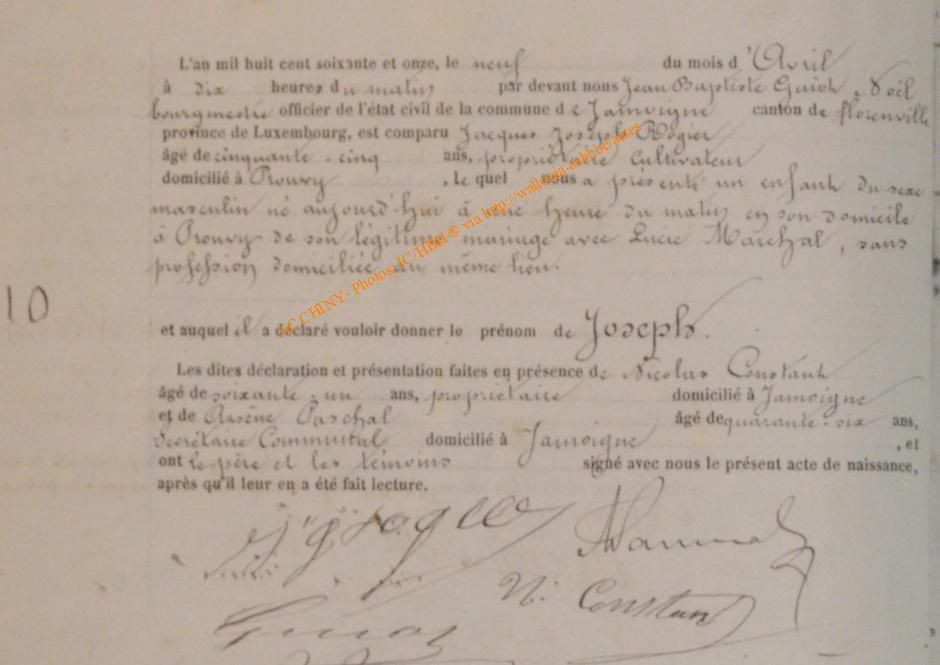 L'an mil huit cent soixante et onze, le neuf du mois d'Avril
à dix heures du matin par devant nous Jean Baptiste Guiot, Noël
bourgmestre officier de l'état civil de la commune de Jamoigne canton de florenville
province de Luxembourg, est comparu Jacques Joseph Rogier
âgé de cinquante-cinq ans, propriétaire cultivateur
domicilié à Prouvy, Le quel nous a présenté un enfant du sexe
masculin né aujourd'hui à une heure du matin en son domicile
à Prouvy de son légitime mariage avec Lucie Maréchal, sans
profession domiciliée au même lieu.
10
et auquel il a déclaré vouloir donner le prénom de Joseph.
Les dites déclaration et présentation faites en présence de Nicolas Constant
âgé de soixante-un ans, propriétaire domicilié à Jamoigne
et de Arsène Paschal âgé de quarante-six ans,
Secrétaire Communal domicilié à Jamoigne, et
ont le père et les témoins signé avec nous le présent acte de naissance,
après qu'il leur en a été fait lecture.
N. Constant
AC CHINY - Photos JC/HBet® via http://wallonia-asbl.be/actes